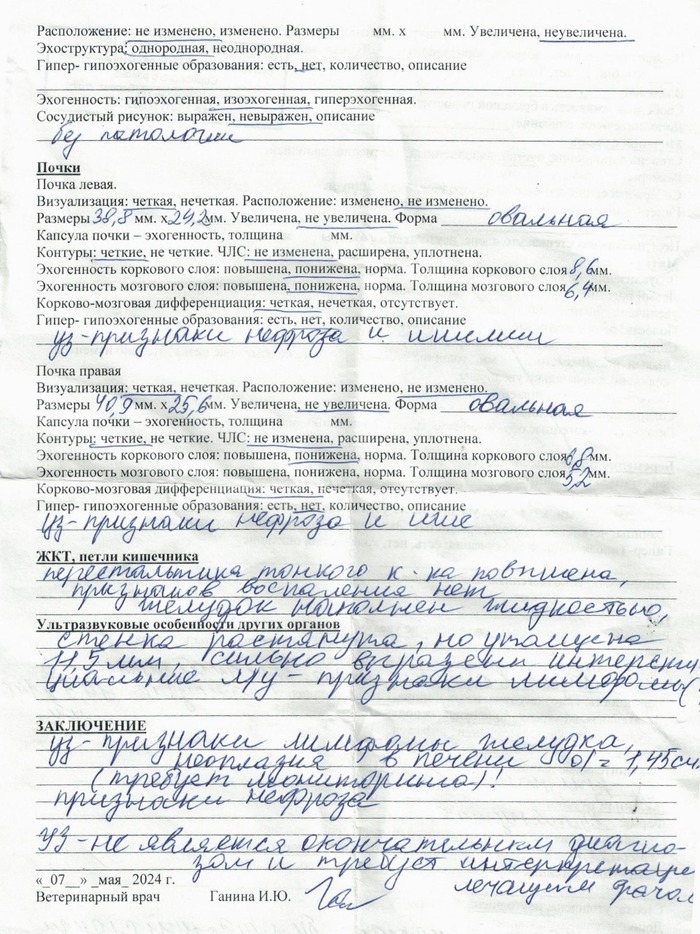 Расположение: не изменено, изменено. Размеры мм. х мм. Увеличена, неувеличена.
Эхоструктура: однородная, неоднородная.
Гипер- гипоэхогенные образования: есть, нет, количество, описание
Эхогенность: гипоэхогенная, изоэхогенная, гиперэхогенная.
Сосудистый рисунок: выражен, невыражен, описание
без патологии
Почки
Почка левая.
Визуализация: четкая, нечеткая. Расположение: изменено, не изменено.
Размеры 38,8 мм. х 24,2 мм. Увеличена, не увеличена. Форма овальная
Капсула почки – эхогенность, толщина мм.
Контуры: четкие, не четкие. ЧЛС: не изменена, расширена, уплотнена.
Эхогенность коркового слоя: повышена, понижена, норма. Толщина коркового слоя 8,6 мм.
Эхогенность мозгового слоя: повышена, понижена, норма. Толщина мозгового слоя 6,4 мм.
Корково-мозговая дифференциация: четкая, нечеткая, отсутствует.
Гипер- гипоэхогенные образования: есть, нет, количество, описание
уз-признаки нефроза и ишемии
Почка правая
Визуализация: четкая, нечеткая. Расположение: изменено, не изменено.
Размеры 40,9 мм. х 25,6 мм. Увеличена, не увеличена. Форма овальная
Капсула почки – эхогенность, толщина мм.
Контуры: четкие, не четкие. ЧЛС: не изменена, расширена, уплотнена.
Эхогенность коркового слоя: повышена, понижена, норма. Толщина коркового слоя мм.
Эхогенность мозгового слоя: повышена, понижена, норма. Толщина мозгового слоя 5,2 мм.
Корково-мозговая дифференциация: четкая, нечеткая, отсутствует.
Гипер- гипоэхогенные образования: есть, нет, количество, описание
уз-признаки нефроза и ише
ЖКТ, петли кишечника
перестальтика тонкого к-ка повышена,
признаков воспаления нет
желудок наполнен жидкостью,
Ультразвуковые особенности других органов
стенка растянута, но утолщена
11,5 мм, сильно выражены интерсти
циальные л/у - признаки лимфомы(
ЗАКЛЮЧЕНИЕ
уз-признаки лимфомы желудка,
неоплазия в печени d = 1,45см
(требует мониторинга)!
признаки нефроза
УЗ-не является окончательным диагно-
зом и требует интерпретации
лечащим врачом
«_07__» _мая_ 2024 г.
Ветеринарный врач Ганина И.Ю.